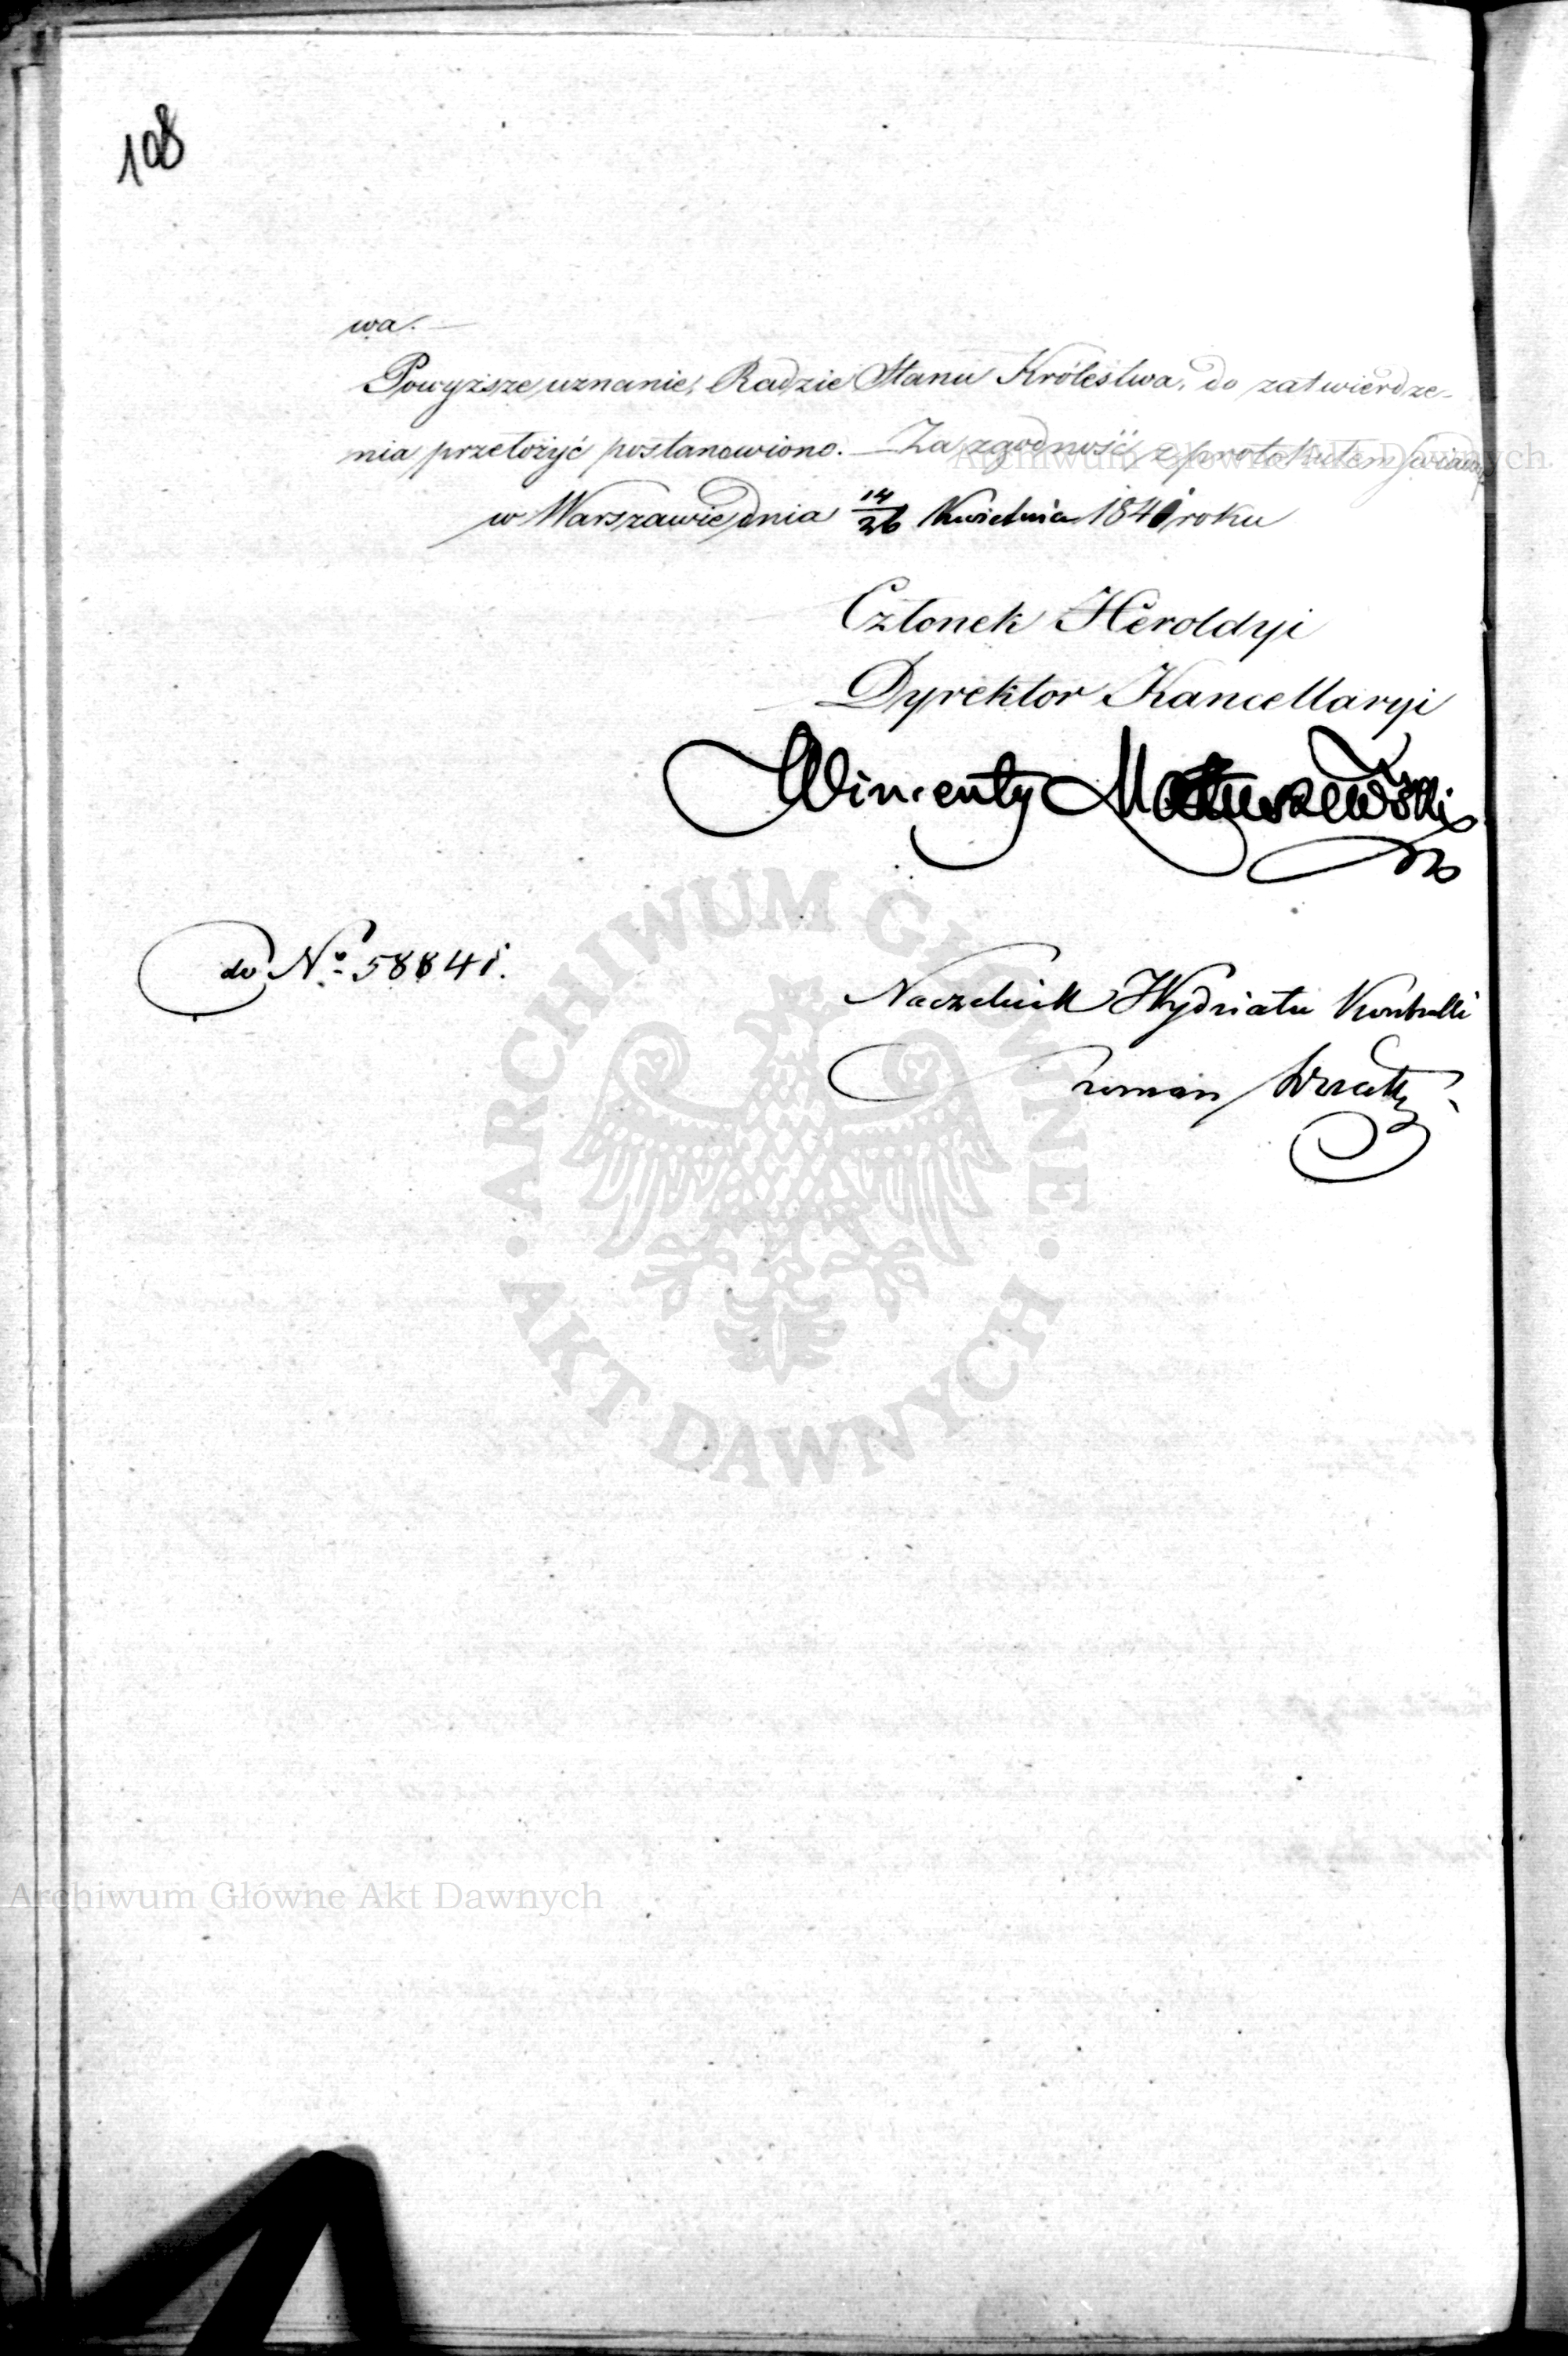 108
wa. —
Powyższe uznanie, Radzie Stanu Królestwa, do zatwierdze-
nia przełożyć postanowiono. — Za zgodność z protokułem
w Warszawie dnia 14/26 Kwietnia 1841 roku
Członek Heroldyi
Dyrektor Kancellaryi
Wincenty Matuszewski
do No 58841.
Naczelnik Wydziału Kontrolli
Roman
ARCHIWUM GŁÓWNE
· AKT DAWNYCH ·
Archiwum Główne Akt Dawnych
Archiwum Główne Akt Dawnych